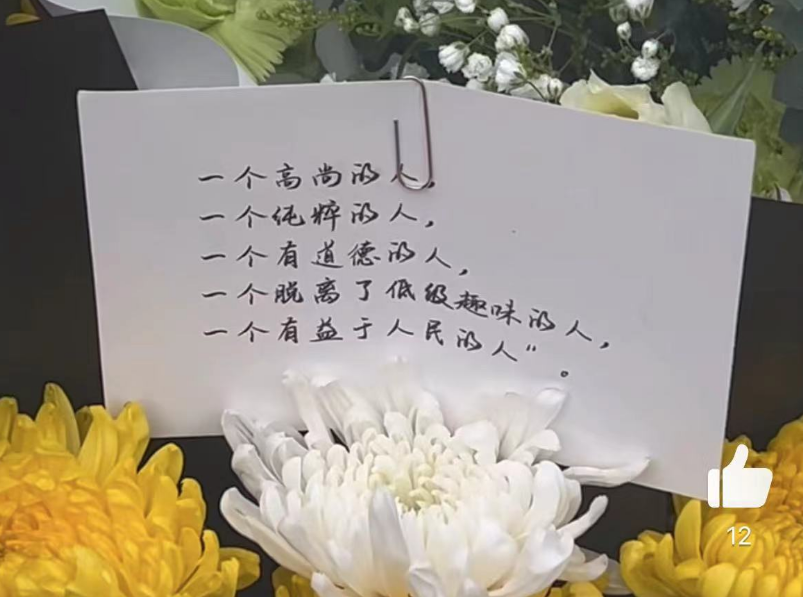 一个高尚的人，
一个纯粹的人，
一个有道德的人，
一个脱离了低级趣味的人，
一个有益于人民的人"。
12